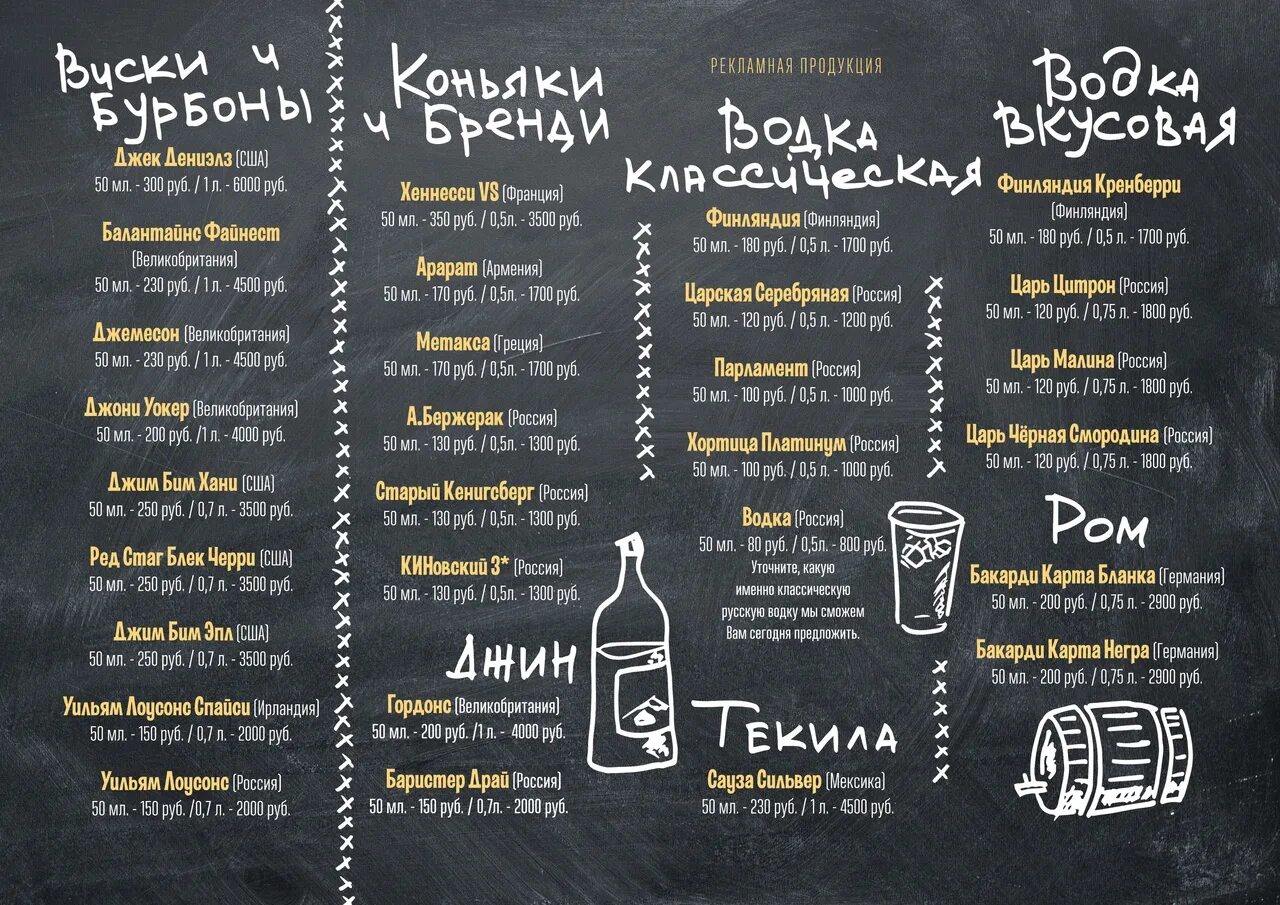 Виски и
Бурбоны
Джек Дениэлз (США)
50 мл. - 300 руб. / 1 л. - 6000 руб.
Балантайнс Файнест
(Великобритания)
50 мл. - 230 руб. / 1 л. - 4500 руб.
Джемесон (Великобритания)
50 мл. - 230 руб. / 1 л. - 4500 руб.
Джони Уокер (Великобритания)
50 мл. - 200 руб. /1 л. - 4000 руб.
Джим Бим Хани (США)
50 мл. - 250 руб. / 0,7 л. - 3500 руб.
Ред Стаг Блек Черри (США)
50 мл. - 250 руб. / 0,7 л. - 3500 руб.
Джим Бим Эпл (США)
50 мл. - 250 руб. / 0,7 л. - 3500 руб.
Уильям Лоусонс Спайси (Ирландия)
50 мл. - 150 руб. / 0,7 л. - 2000 руб.
Уильям Лоусонс (Россия)
50 мл. - 150 руб. /0,7 л. - 2000 руб.
Коньяки
и Бренди
Хеннесси VS (Франция)
50 мл. - 350 руб. / 0,5л. - 3500 руб.
Арарат (Армения)
50 мл. - 170 руб. / 0,5л. - 1700 руб.
Метакса (Греция)
50 мл. - 170 руб. / 0,5л. - 1700 руб.
А.Бержерак (Россия)
50 мл. - 130 руб. / 0,5л. - 1300 руб.
Старый Кенигсберг (Россия)
50 мл. - 130 руб. / 0,5л. - 1300 руб.
КИНовский 3* (Россия)
50 мл. - 130 руб. / 0,5л. - 1300 руб.
Джин
Гордонс (Великобритания)
50 мл. - 200 руб. /1 л. - 4000 руб.
Баристер Драй (Россия)
50 мл. - 150 руб. / 0,7л. - 2000 руб.
РЕКЛАМНАЯ ПРОДУКЦИЯ
Водка
классическая
Финляндия (Финляндия)
50 мл. - 180 руб. / 0,5 л. - 1700 руб.
Царская Серебряная (Россия)
50 мл. - 120 руб. / 0,5 л. - 1200 руб.
Парламент (Россия)
50 мл. - 100 руб. / 0,5 л. - 1000 руб.
Хортица Платинум (Россия)
50 мл. - 100 руб. / 0,5 л. - 1000 руб.
Водка (Россия)
50 мл. - 80 руб. / 0,5л. - 800 руб.
Уточните, какую
именно классическую
русскую водку мы сможем
Вам сегодня предложить.
Текила
Сауза Сильвер (Мексика)
50 мл. - 230 руб. / 1 л. - 4500 руб.
Водка
вкусовая
Финляндия Кренберри
(Финляндия)
50 мл. - 180 руб. / 0,5 л. - 1700 руб.
Царь Цитрон (Россия)
50 мл. - 120 руб. / 0,75 л. - 1800 руб.
Царь Малина (Россия)
50 мл. - 120 руб. / 0,75 л. - 1800 руб.
Царь Чёрная Смородина (Россия)
50 мл. - 120 руб. / 0,75 л. - 1800 руб.
Ром
Бакарди Карта Бланка (Германия)
50 мл. - 200 руб. / 0,75 л. - 2900 руб.
Бакарди Карта Негра (Германия)
50 мл. - 200 руб. / 0,75 л. - 2900 руб.